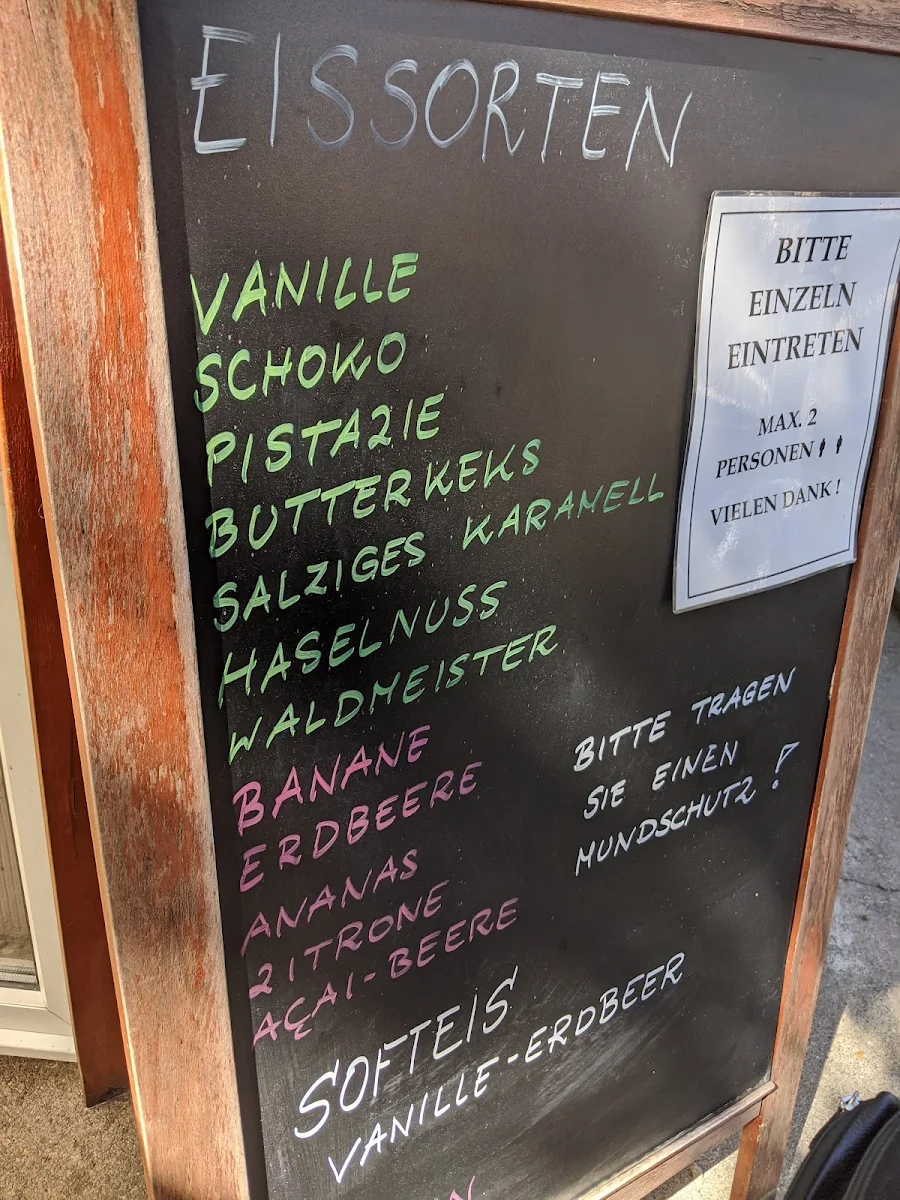 EISSORTEN
VANILLE
SCHOKO
PISTAZIE
BUTTERKEKS
SALZIGES KARAMELL
HASELNUSS
WALDMEISTER
BANANE
ERDBEERE
ANANAS
ZITRONE
AÇAI-BEERE
SOFTEIS
VANILLE-ERDBEER
BITTE
EINZELN
EINTRETEN
MAX. 2
PERSONEN
VIELEN DANK!
BITTE TRAGEN
SIE EINEN
MUNDSCHUTZ!